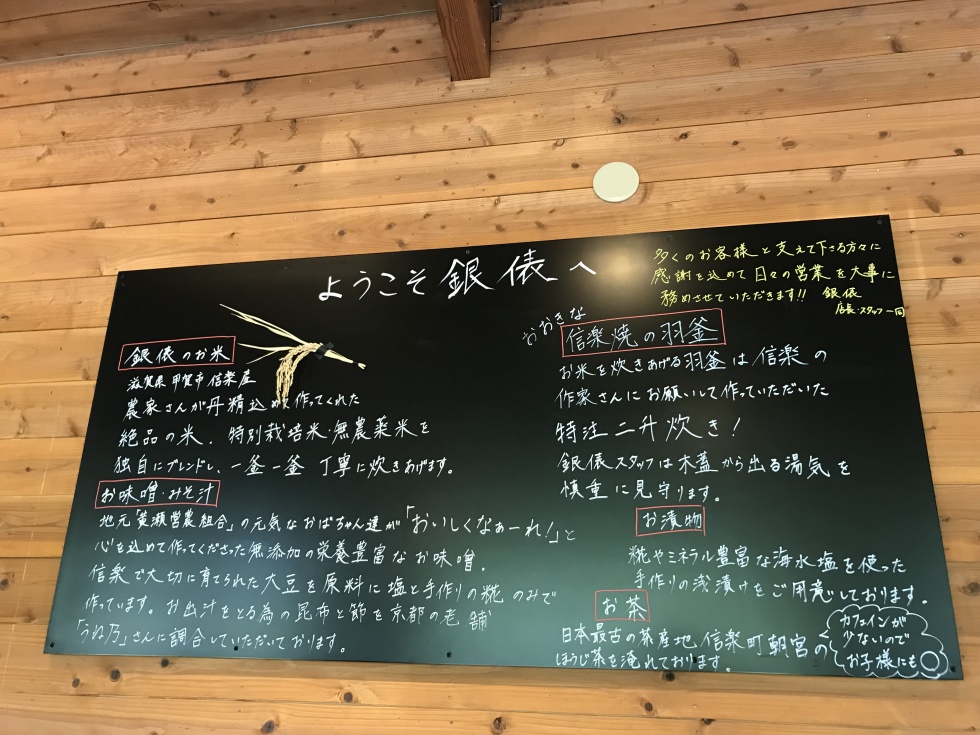 ようこそ 銀俵へ
多くのお客様と支えて下さる方々に
感謝を込めて日々の営業を大事に
務めさせていただきます!! 銀俵
店長・スタッフ一同
銀俵のお米
滋賀県甲賀市信楽産
農家さんが丹精込めて作ってくれた
絶品の米。特別栽培米・無農薬米を
独自にブレンドし、一釜一釜 丁寧に炊きあげます。
お味噌・みそ汁
地元「黄瀬営農組合」の元気なおばちゃん達が「おいしくなぁーれ!」と
心を込めて作ってくださった無添加の栄養豊富なお味噌。
信楽で大切に育てられた大豆を原料に塩と手作りの糀のみで
作っています。お出汁をとる為の昆布と節を京都の老舗
「うね乃」さんに調合していただいております。
おおきな
信楽焼の羽釜
お米を炊きあげる羽釜は信楽の
作家さんにお願いして作っていただいた
特注二升炊き!
銀俵スタッフは木蓋から出る湯気を
慎重に見守ります。
お漬物
糀やミネラル豊富な海水塩を使った
手作りの浅漬けをご用意しております。
お茶
日本最古の茶産地、信楽町朝宮の
ほうじ茶を淹れております。
カフェインが
少ないので
お子様にも○